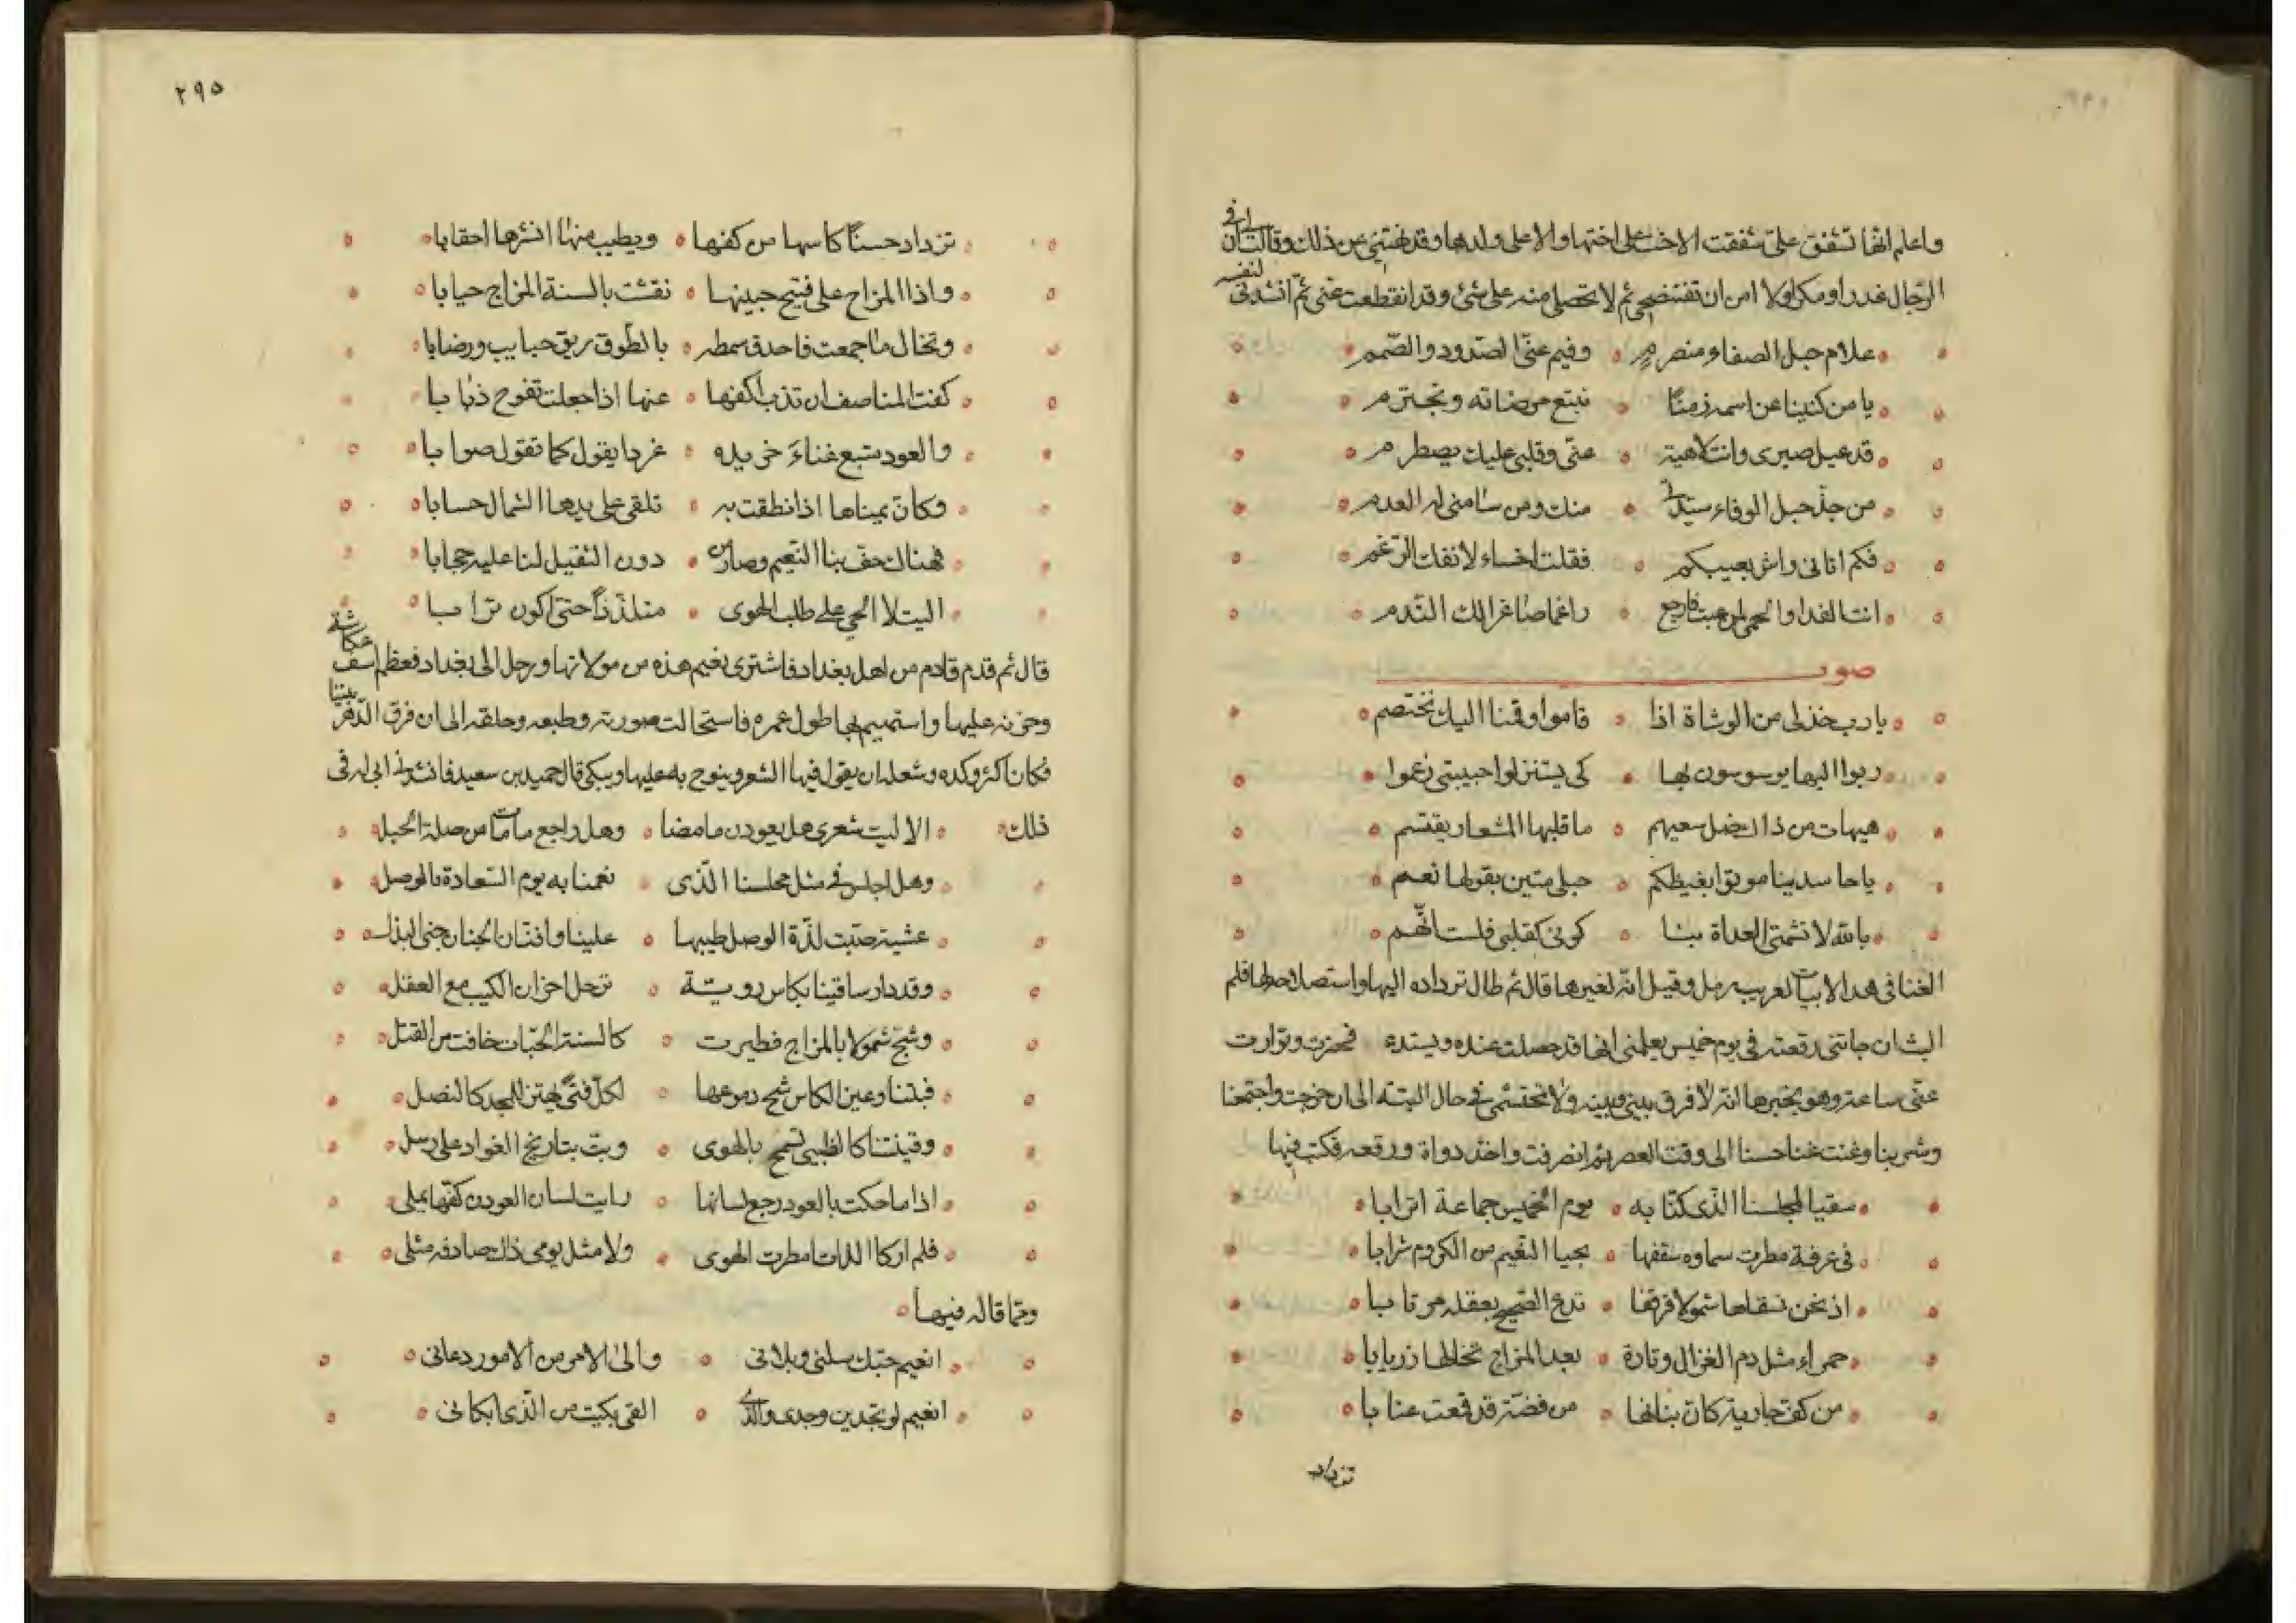 واعلم انها تشفق علىّ شفقت الاخت على اختها والام على ولدها وقد نهتنى عن ذلك وقالت ان فى
الرجال غدرا ومكرا ولا امن ان تفتضحى ثم لا تحصلى منه على شئ وقد انقطعت عنى ثم انشدنى لنفسه
علام حبل الصفاء منصرم ٥ وفيم عنّى الصدود والصمم
يا من كنينا عن اسمه زمنًا ٥ نبتع مرضاته ونجترم
قد عيل صبرى وانت لاهية ٥ عنّى وقلبى عليك يضطرم
من جذ حبل الوفاء سيدتى ٥ منك ومن سامنى له العدم
فكم اتانى واش بعيبكم ٥ فقلت اخساء لانفك الرّغم
انت الفدا والحمى لمن عبت فارجع ٥ راغما صاغرا لك النّدم
صوت
يا رب خذ لى من الوشاة اذا ٥ قاموا وقمنا اليك نختصم
دبوا اليها يوسوسون لها ٥ كى يستنزلوا حبيبتى زعموا
هيهات من ذاك ضل سعيهم ٥ ما قلبها المشعار يقتسم
يا حاسدينا موتوا بغيظكم ٥ حبلى متين بقولها نعم
بالله لا تشمتى العداة بنا ٥ كونى كقلبى فلست اتّهم
الغنا فى هذا الابيات لعريب رمل وقيل انه لغيرها قال ثم طال ترداده اليها واستصلاحه لها فلم
البث ان جاءتنى رقعته فى يوم خميس يعلمنى انها قد حصلت عنده ويستدعى فحضرت وتوارت
عنّى ساعة وهو يخبرها انه لا فرق بينى وبينه ولا تحتشمى فى حال البتة الى ان خرجت واجتمعنا
وشربنا وغنت غنا حسنا الى وقت العصر ثم انصرفت واخذ دواة ورقعه فكتب فيها
سقيا لمجلسنا الذى كنّا به ٥ يوم الخميس جماعة اترابا
فى غرفة مطرت سماوه سقفها ٥ بحيا النّعيم من الكروم شرابا
اذ نحن نسقاها شمولا قرقفا ٥ تدع الصحيح بعقله مرتابا
حمراء مثل دم الغزال وتارة ٥ بعد المزاج تخالها زريابا
من كف جارية كان بنانها ٥ من فضة قد قمعت عنابا
تزداد
٢٩٥
تزداد حسنًا كاسها من كفها ٥ ويطيب منها نشرها احقابا
واذا المزاج على فتيح جبينها ٥ نقشت بالسنة المزاج حبابا
وتخال ما جمعت فاحدق سمطه ٥ بالطّوق ريق حبايب ورضابا
كفت المناصف ان تذب اكفها ٥ عنها اذا جعلت تفوح ذبابا
والعود متبع غناءَ خريده ٥ غردا يقول كما تقول صوابا
وكانّ يمناها اذا نطقت به ٥ تلقى على يدها الشمال حسابا
فهناك حف بنا النّعيم وصار من ٥ دون الثقيل لنا عليه حجابا
اليت لا الحى على طلب الهوى ٥ متلذذًا حتى اكون ترابا
قال ثم قدم قادم من اهل بغداد فاشترى نعيم هذه من مولاتها ورحل الى بغداد فعظم اسف عكاشة
وحزنه عليها واستهيم بها طول عمره فاستحالت صورته وطبعه وخلقه الى ان فرق الدّهر بينهما
فكان اكثر وكده وشغله ان يقول فيها الشعر وينوح به عليها ويبكى قال حميد بن سعيد فانشدنى ابى له فى
ذلك ٥ الا ليت شعرى هل يعودن ما مضا ٥ وهل راجع ما مات من صلة الحبل
وهل اجلس فى مثل مجلسنا الذى ٥ نعمنا به يوم السّعادة بالوصل
عشية صبّت لذّة الوصل طيبها ٥ علينا وافنان الجنان جنى البذل
وقد دار ساقينا بكاس رويّة ٥ ترحل احزان الكئيب مع العقل
وشج شمولا بالمزاج فطيرت ٥ كالسنة الحيّات خافت من القتل
فبتنا وعين الكاس سّح دموعها ٥ لكل فتًى يهتز للمجد كالنصل
وقينتنا كالظبى تسمح بالهوى ٥ وبث تباريح الفواد على رسل
اذا ما حكت بالعود رجع لسانها ٥ رايت لسان العود من كفّها يملى
فلم ار كاللذات امطرت الهوى ٥ ولا مثل يومى ذاك صادفه مثلى
وممّا قاله فيها
انعيم حبّك سلنى وبلانى ٥ والى الامر من الامور دعانى
انعيم لو تجدين وجدى والذى ٥ القى بكيت من الّذى ابكانى